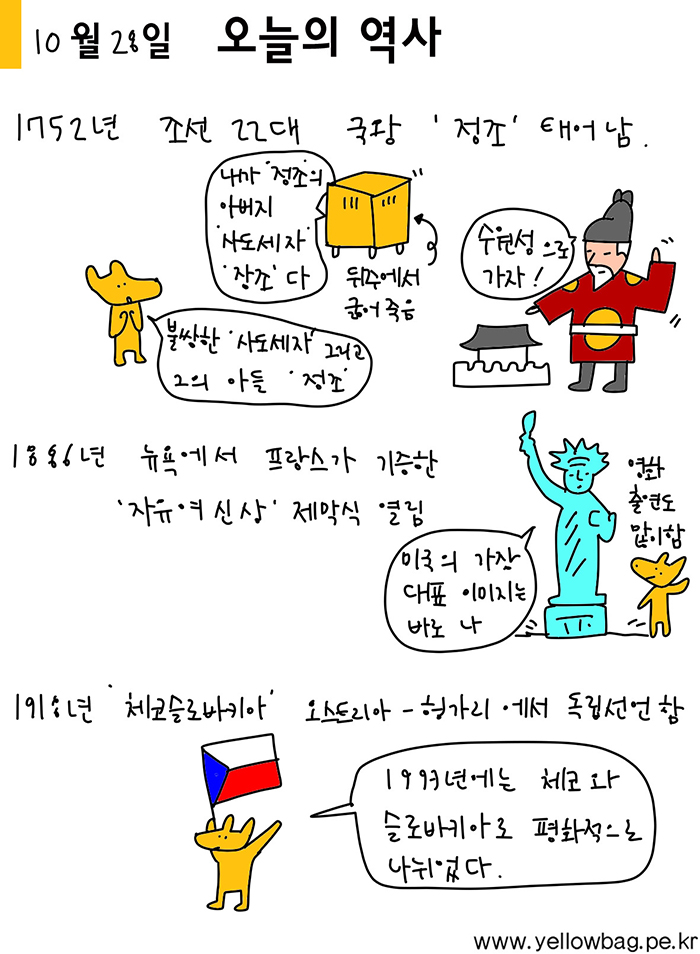 10월 28일 오늘의 역사
1752년 조선 22대 국왕 '정조' 태어남.
내가 '정조'의
아버지
'사도세자'
'장조'다
뒤주에서
굶어죽음
수원성으로
가자!
불쌍한 '사도세자' 그리고
그의 아들 '정조'
1886년 뉴욕에서 프랑스가 기증한
'자유여신상' 제막식 열림
영화
출연도
많이함
미국의 가장
대표 이미지는
바로 나
1918년 '체코슬로바키아' 오스트리아-헝가리에서 독립선언함
1993년에는 체코와
슬로바키아로 평화적으로
나뉘었다.
www.yellowbag.pe.kr